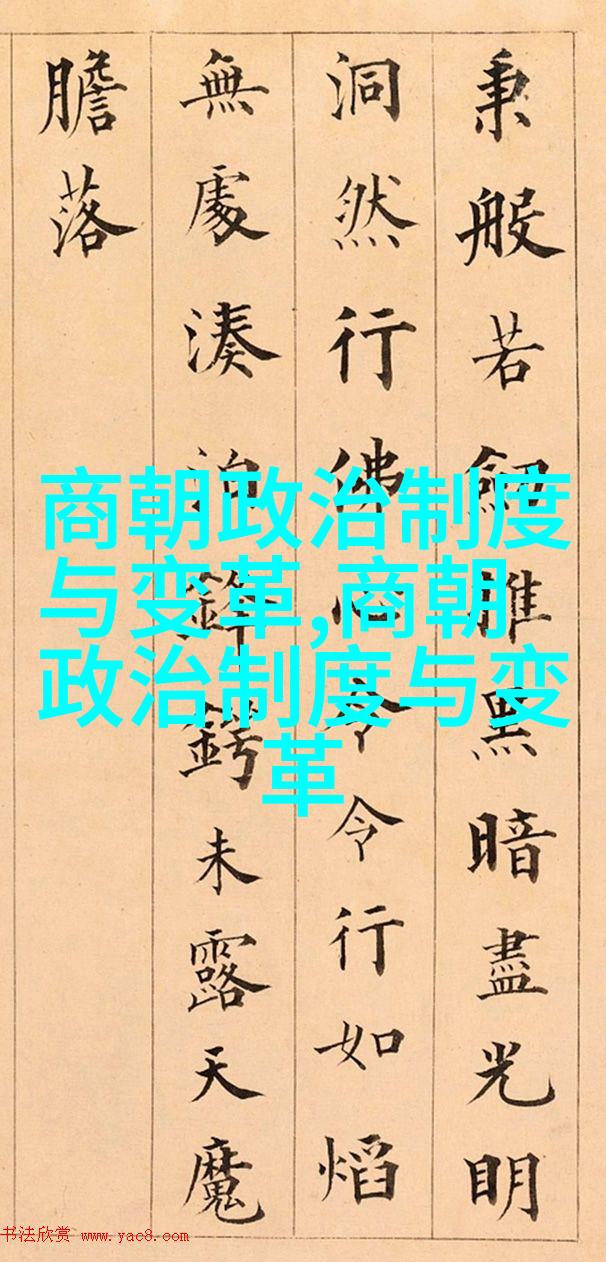 秉般若劒推黑暗盡光明
洞然行佛心令令行如熖
無處湊泊鋒鍔未露天魔
膽落
商朝政治制度
与变革,商朝
政治制度与变
革
书法欣赏 www.yac8.com